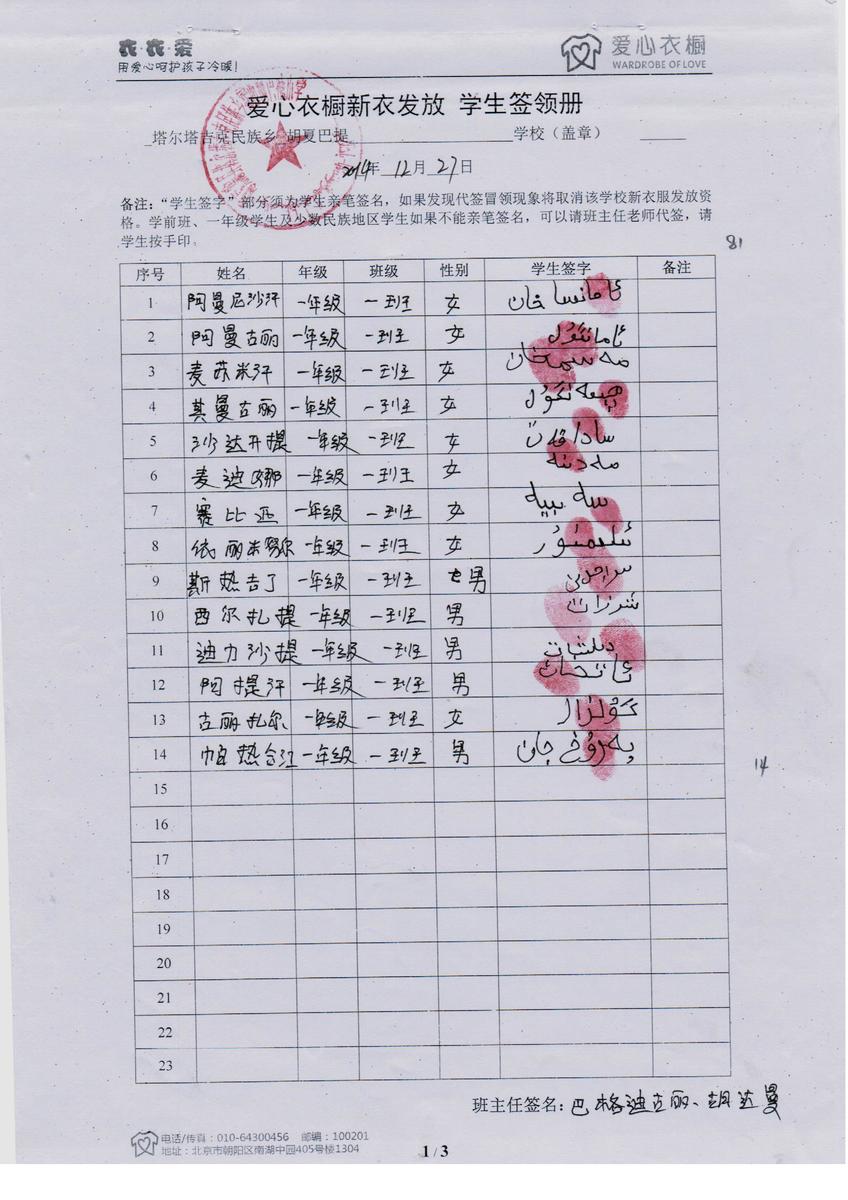 衣·衣·爱
用爱心呵护孩子冷暖!
爱心衣橱
WARDROBE OF LOVE
爱心衣橱新衣发放 学生签领册
塔尔塔吉克民族乡 胡夏巴提 学校（盖章）
2014年 12月 27日
备注：“学生签字”部分须为学生亲笔签名，如果发现代签冒领现象将取消该学校新衣服发放资
格。学前班、一年级学生及少数民族地区学生如果不能亲笔签名，可以请班主任老师代签，请
学生按手印。
81
序号 姓名 年级 班级 性别 学生签字 备注
1 阿曼尼沙汗 一年级 一班 女 ئامانساخان
2 阿曼古丽 一年级 一班 女 ئامانگۈل
3 麦苏米汗 一年级 一班 女
4 其曼古丽 一年级 一班 女
5 沙达开提 一年级 一班 女
6 麦迪娜 一年级 一班 女 مەدىنە
7 赛比亚 一年级 一班 女 سەبىيە
8 依丽米努尔 一年级 一班 女
9 斯热吉丁 一年级 一班 男
10 西尔扎提 一年级 一班 男 شىرزات
11 迪力沙提 一年级 一班 男 دىلشات
12 阿提汗 一年级 一班 男
13 古丽扎尔 一年级 一班 女 گۈلزار
14 帕热合江 一年级 一班 男
14
15
16
17
18
19
20
21
22
23
班主任签名：巴格迪古丽、胡达曼
电话/传真：010-64300456 邮编：100201
地址：北京市朝阳区南湖中园405号楼1304
1 / 3